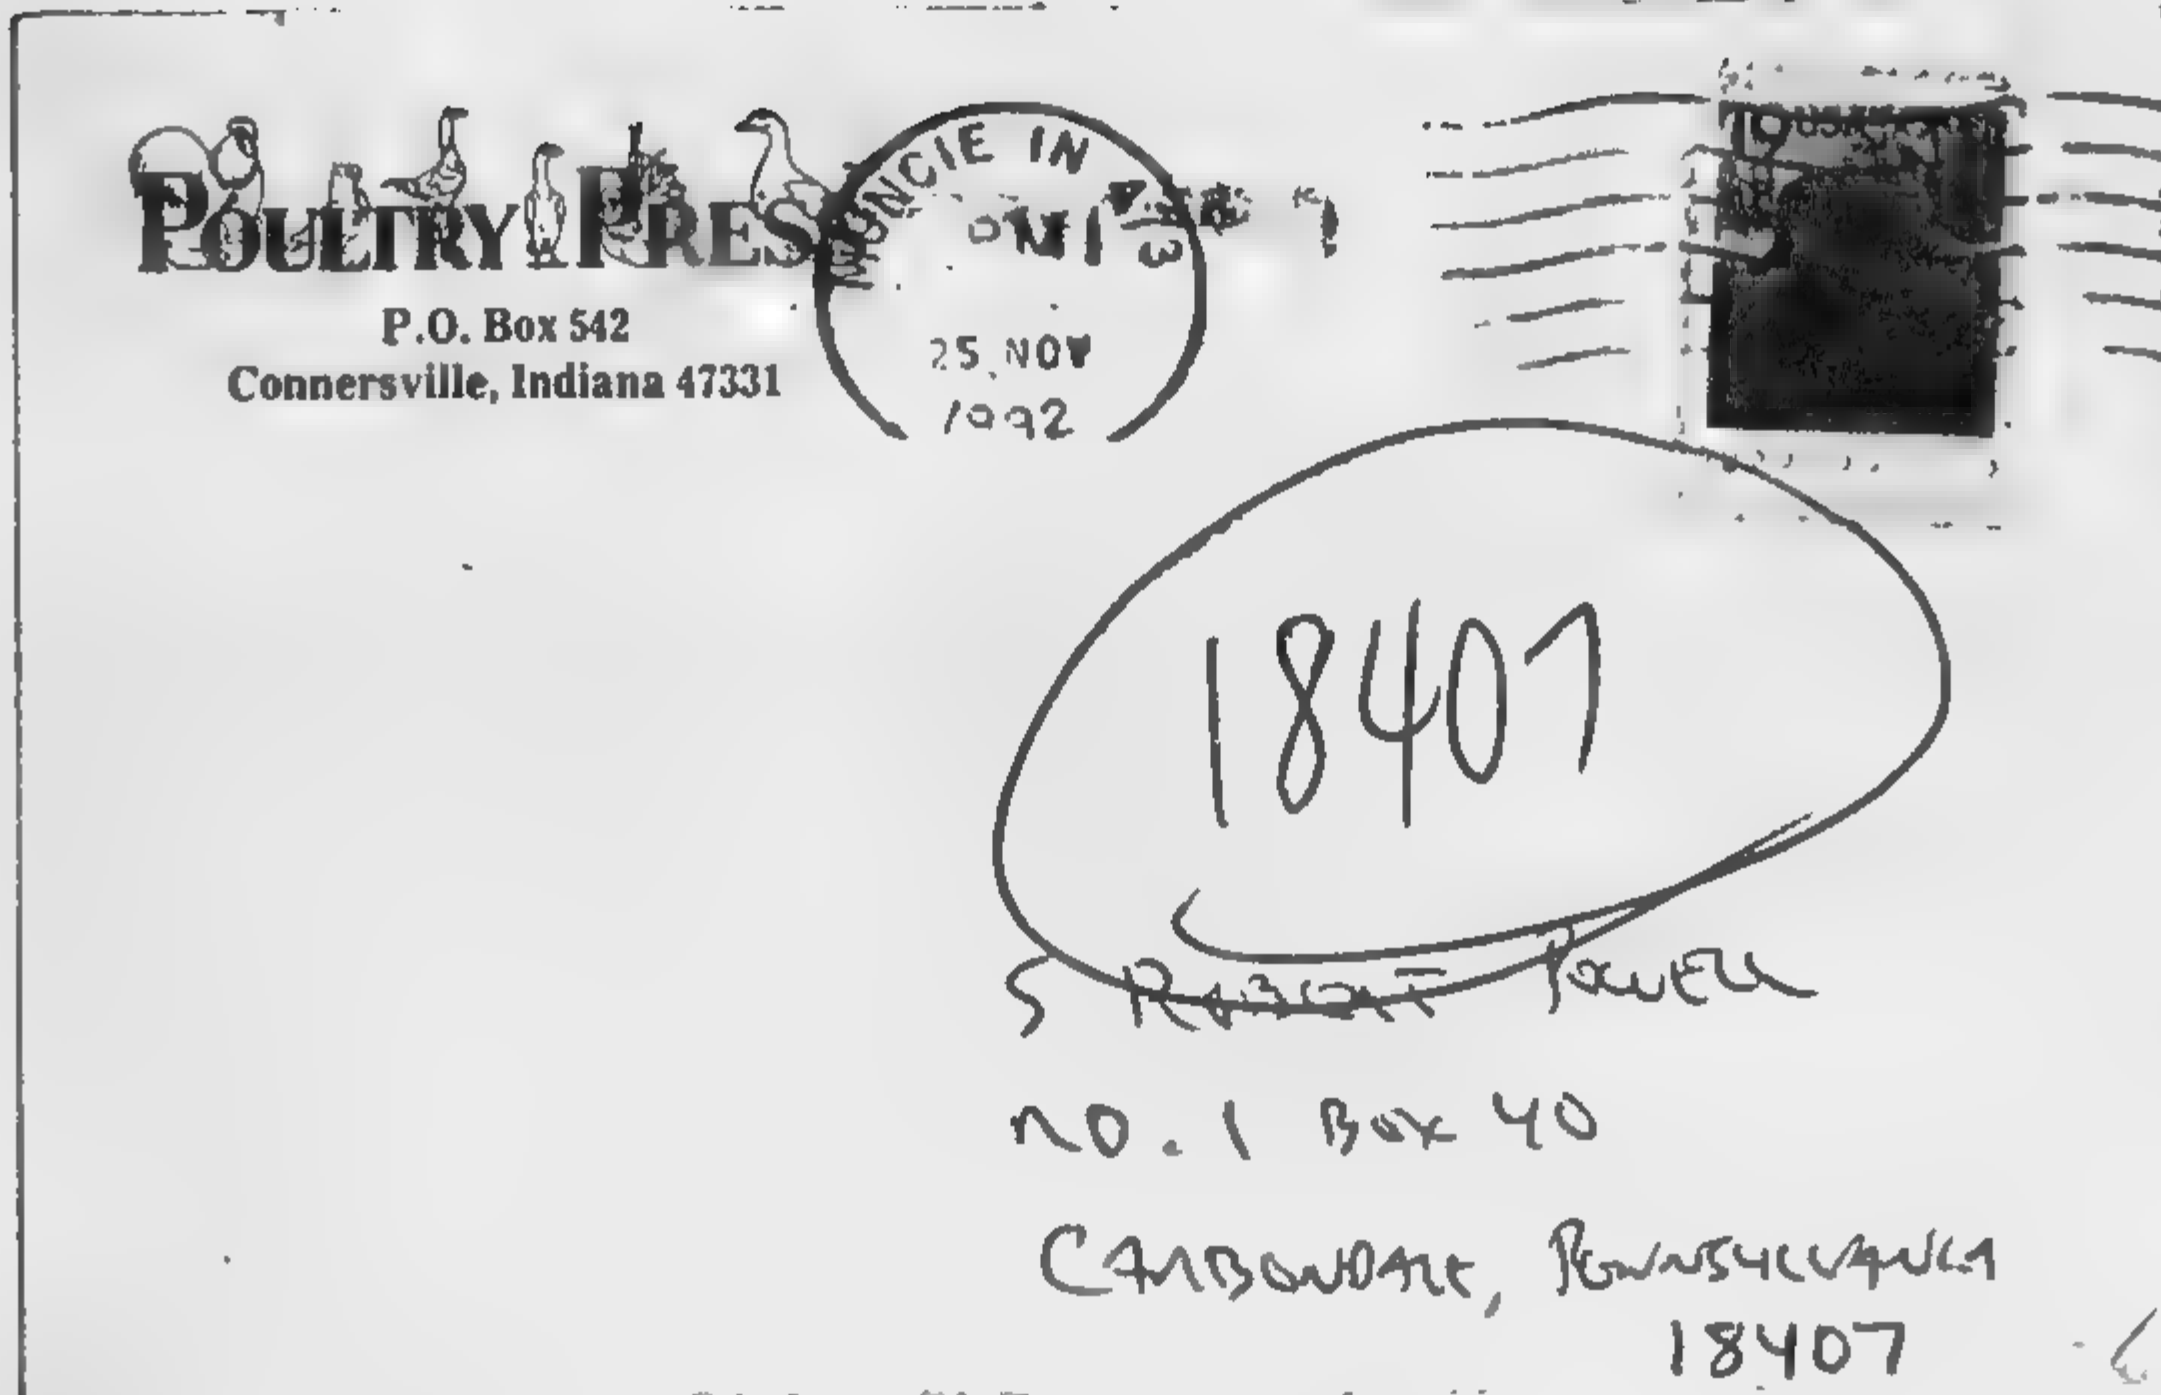 POULTRY PRESS
P.O. Box 542
Connersville, Indiana 47331
MUNCIE IN 473
25 NOV
1992
18407
S ROBERT POWELL
NO. 1 BOX 40
CARBONDALE, PENNSYLVANIA
18407